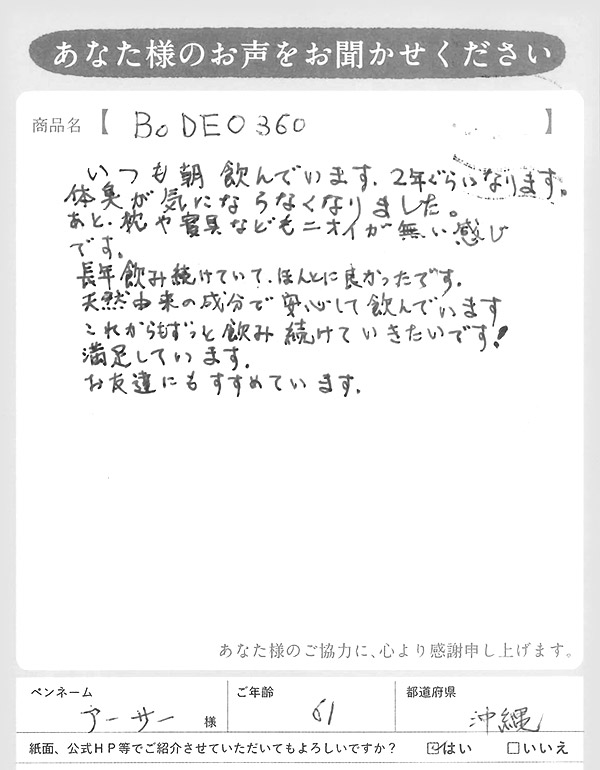 あなた様のお声をお聞かせください
商品名【 BoDEO360 】
いつも朝飲んでいます。2年ぐらいなります。
体臭が気にならなくなりました。
あと、枕や寝具などもニオイが無い感じ
です。
長年飲み続けていて、ほんとに良かったです。
天然由来の成分で安心して飲んでいます
これからもずっと飲み続けていきたいです!
満足しています。
お友達にもすすめています。
あなた様のご協力に、心より感謝申し上げます。
ペンネーム ご年齢 都道府県
アーサー 様 61 沖縄
紙面、公式HP等でご紹介させていただいてもよろしいですか? ☑はい □いいえ